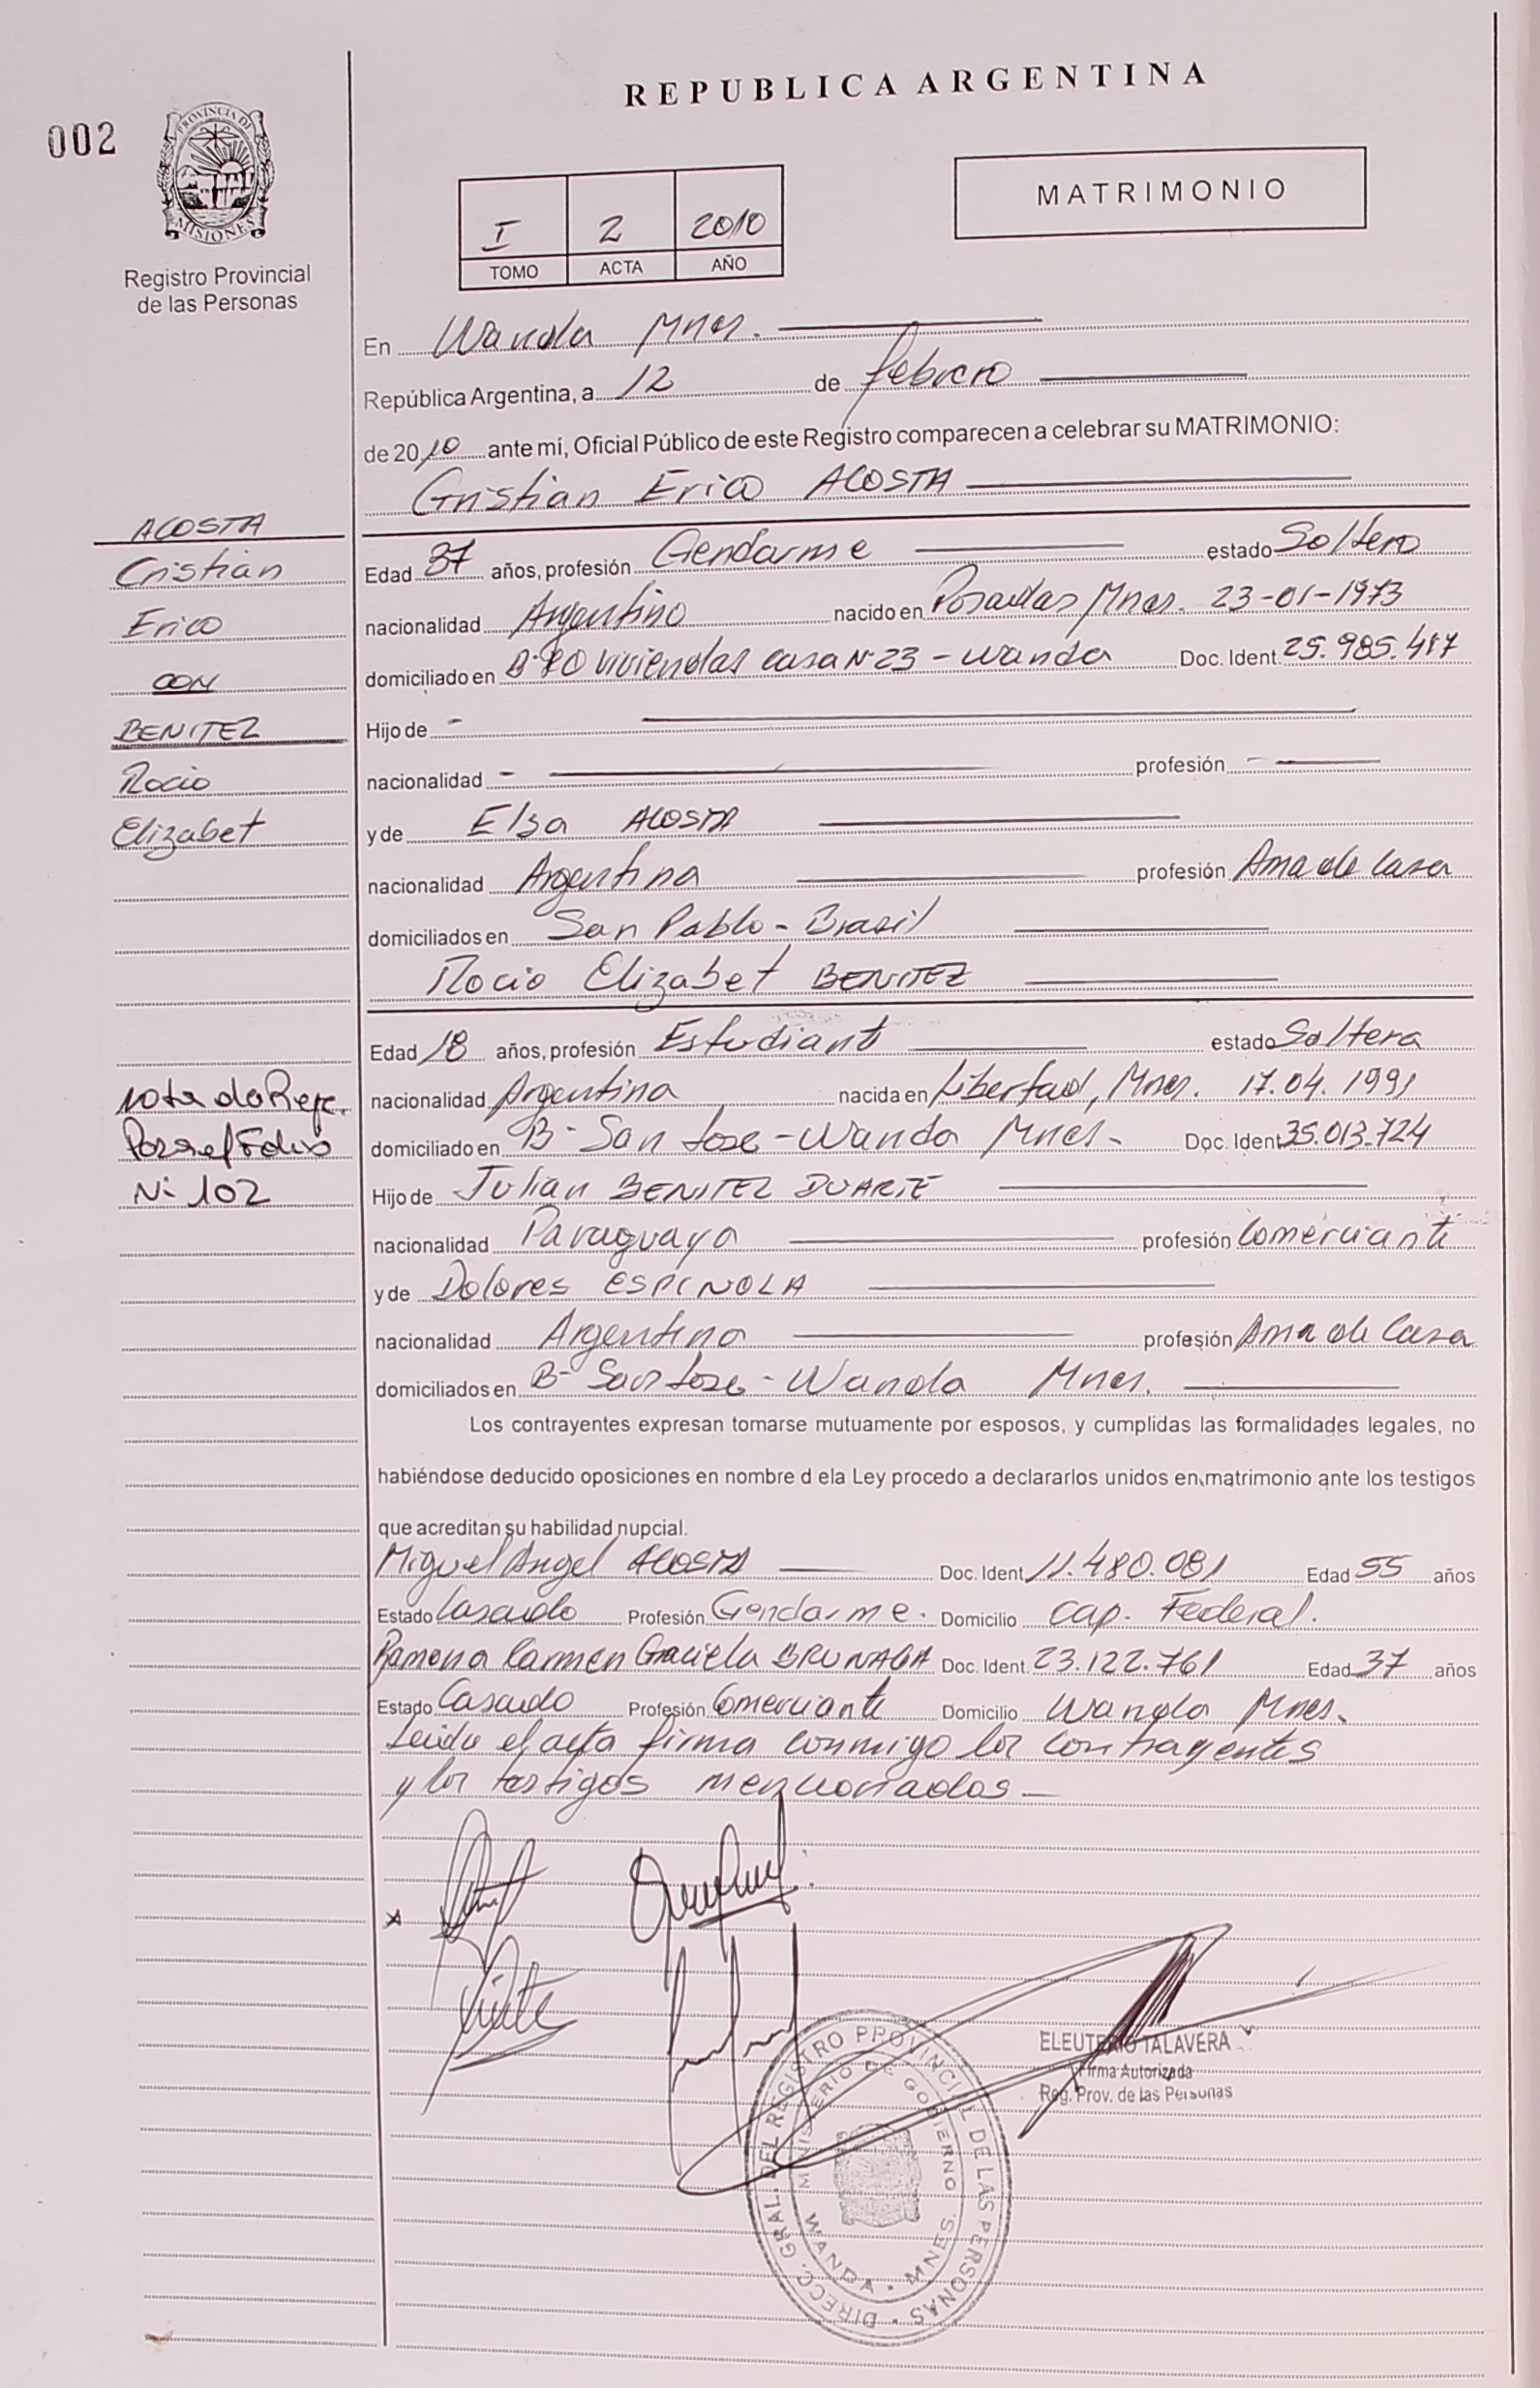 REPUBLICA ARGENTINA
002
PROVINCIA DE
MISIONES
Registro Provincial
de las Personas
MATRIMONIO
I 2 2010
TOMO ACTA AÑO
En Wanda Mnes.
República Argentina, a 12 de febrero
de 2010 ante mí, Oficial Público de este Registro comparecen a celebrar su MATRIMONIO:
Cristian Erico ACOSTA
ACOSTA
Cristian
Erico
CON
BENITEZ
Rocio
Elizabet
Edad 37 años, profesión Gendarme estado Soltero
nacionalidad Argentino nacido en Posadas Mnes. 23-01-1973
domiciliado en viviendas casa N° 23 - Wanda Doc. Ident. 25.985.417
Hijo de -
nacionalidad - profesión -
y de Elsa ACOSTA
nacionalidad Argentina profesión Ama de Casa
domiciliados en San Pablo - Brasil
Rocio Elizabet BENITEZ
Edad 18 años, profesión Estudiante estado Soltera
nacionalidad Argentina nacida en Libertad, Mnes. 17.04.1991
domiciliado en B° San Jose - Wanda Mnes. Doc. Ident. 35.013.724
Hijo de Julian BENITEZ DUARTE
nacionalidad Paraguaya profesión Comerciante
y de Dolores ESPINOLA
nacionalidad Argentina profesión Ama de Casa
domiciliados en B° San Jose - Wanda Mnes.
Nota de Refe.
Folio
N° 102
Los contrayentes expresan tomarse mutuamente por esposos, y cumplidas las formalidades legales, no
habiéndose deducido oposiciones en nombre d ela Ley procedo a declararlos unidos en matrimonio ante los testigos
que acreditan su habilidad nupcial.
Miguel Angel ACOSTA Doc. Ident. 11.480.081 Edad 55 años
Estado Casado Profesión Gendarme. Domicilio Cap. Federal.
Ramona Carmen Graciela Doc. Ident. 23.122.761 Edad 37 años
Estado Casado Profesión Comerciante Domicilio Wanda Mnes.
Leida el acta firma conmigo los contrayentes
y los testigos mencionados
ELEUTERIO TALAVERA
Firma Autorizada
Reg. Prov. de las Personas
DIRECC. GRAL. DEL REGISTRO PROVINCIAL DE LAS PERSONAS
MINISTERIO DE GOBIERNO
WANDA - MNES.